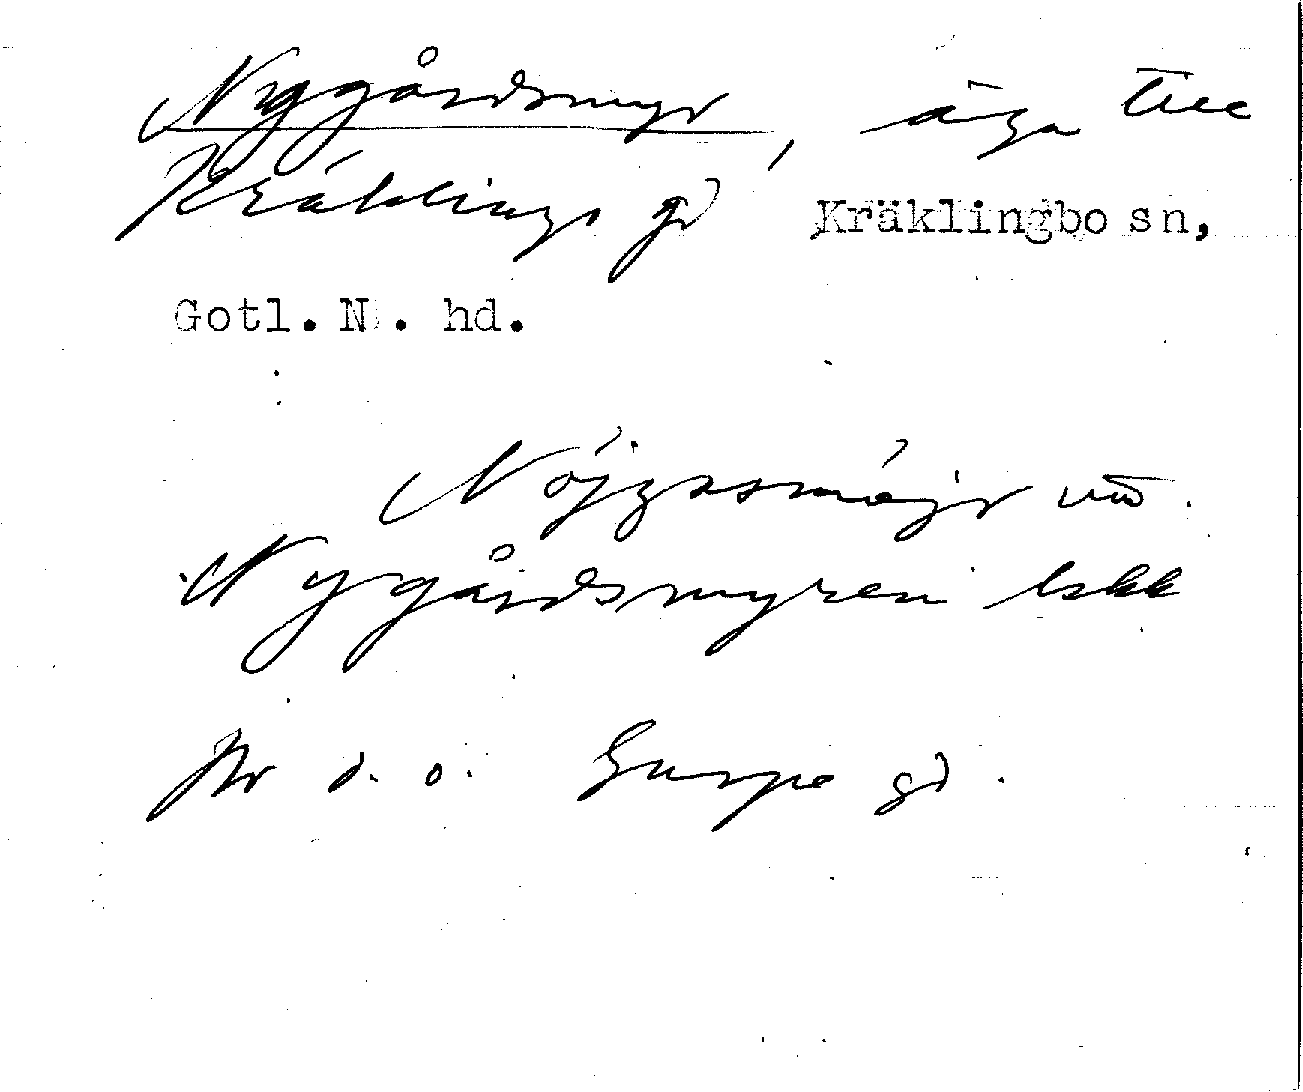 Nygårdsmyr, äga till
Kräklings gd Kräklingbo sn,
Gotl. N. hd.
Nöjgasmöjr
Nygårdsmyren
Hr d. o. gd.